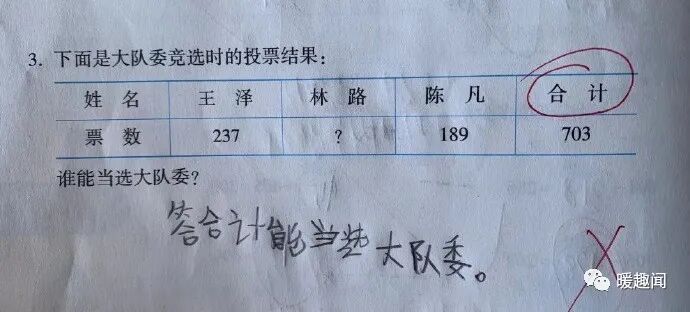 3. 下面是大队委竞选时的投票结果：
姓 名 王 泽 林 路 陈 凡 合 计
票 数 237 ? 189 703
谁能当选大队委？
答合计能当选大队委。
暖趣闻